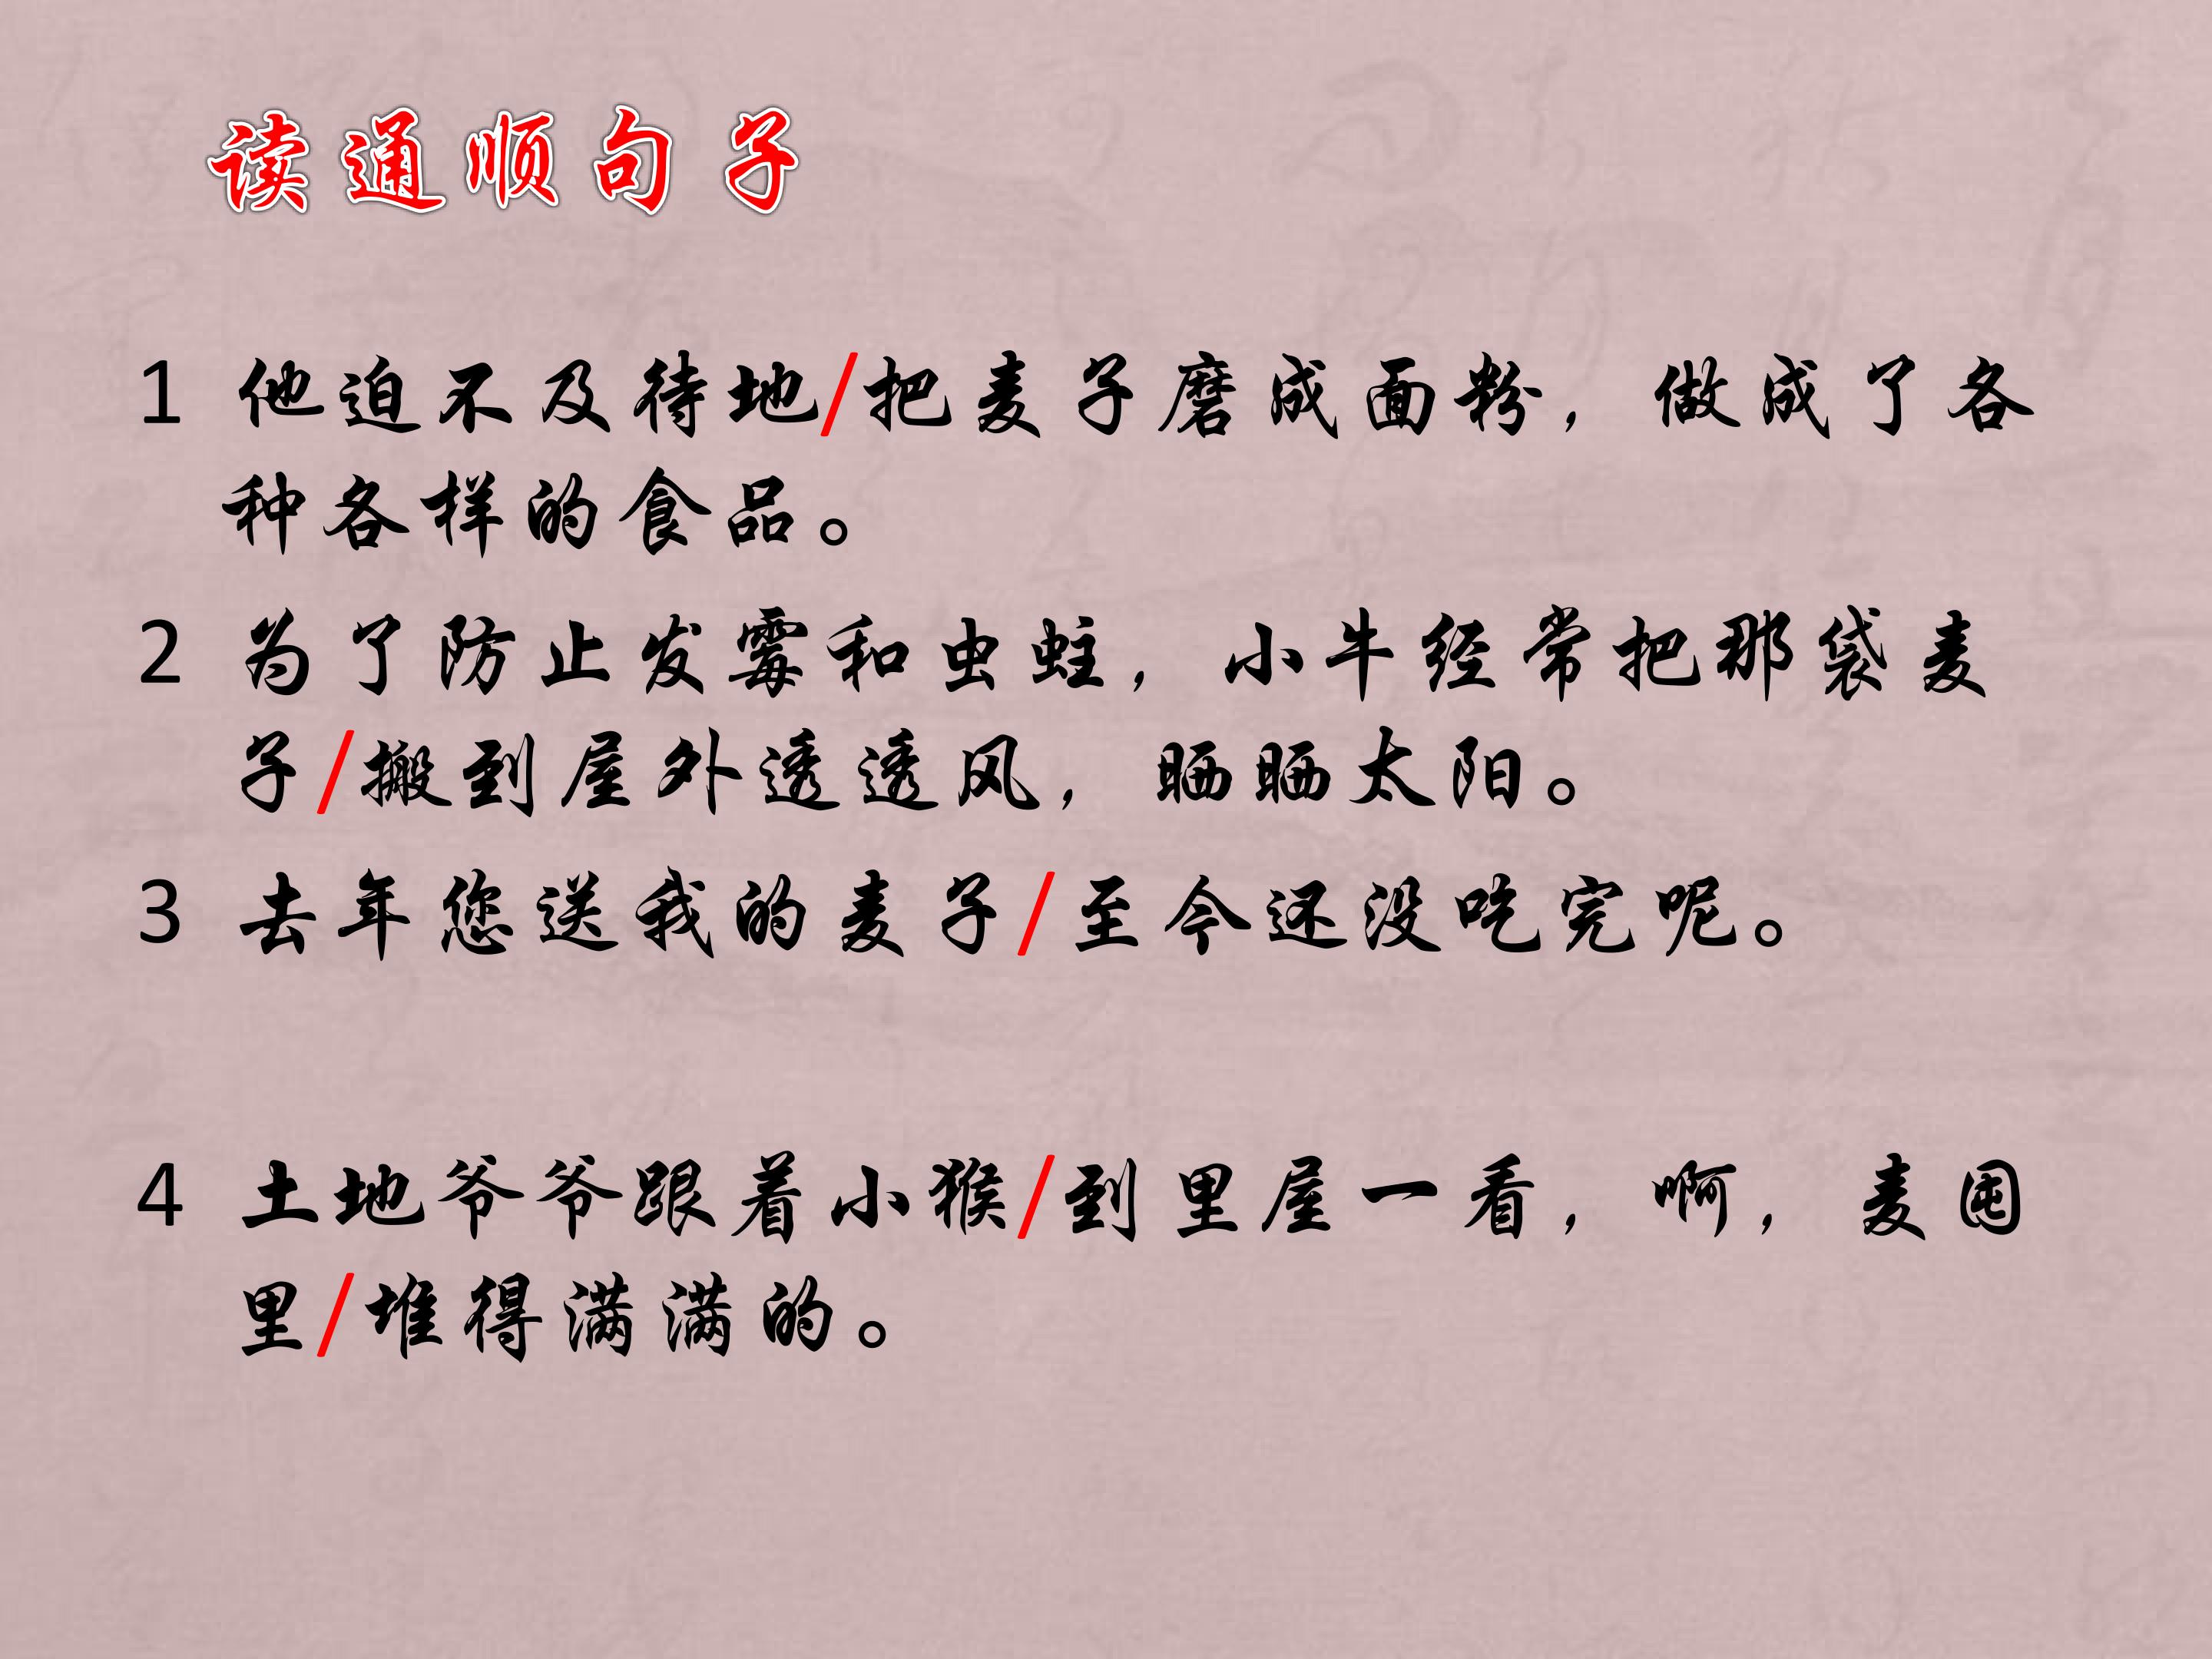 读通顺句子
1 他迫不及待地/把麦子磨成面粉，做成了各
种各样的食品。
2 为了防止发霉和虫蛀，小牛经常把那袋麦
子/搬到屋外透透风，晒晒太阳。
3 去年您送我的麦子/至今还没吃完呢。
4 土地爷爷跟着小猴/到里屋一看，啊，麦囤
里/堆得满满的。